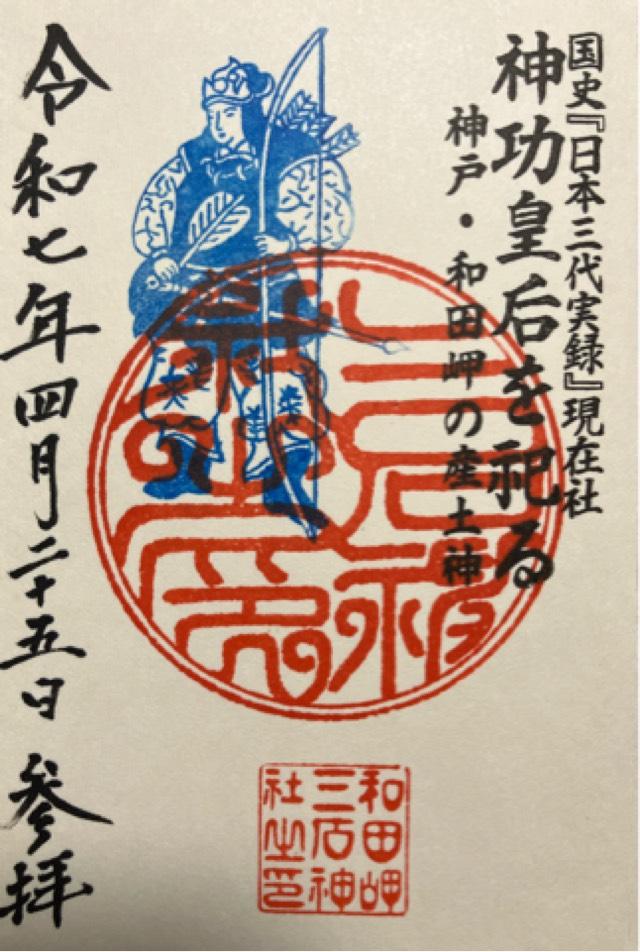 国史『日本三代実録』現在社
神功皇后を祀る
神戸・和田岬の産土神
三石神
社之印
令和七年四月二十五日 参拝
和田岬
三石神
社之印